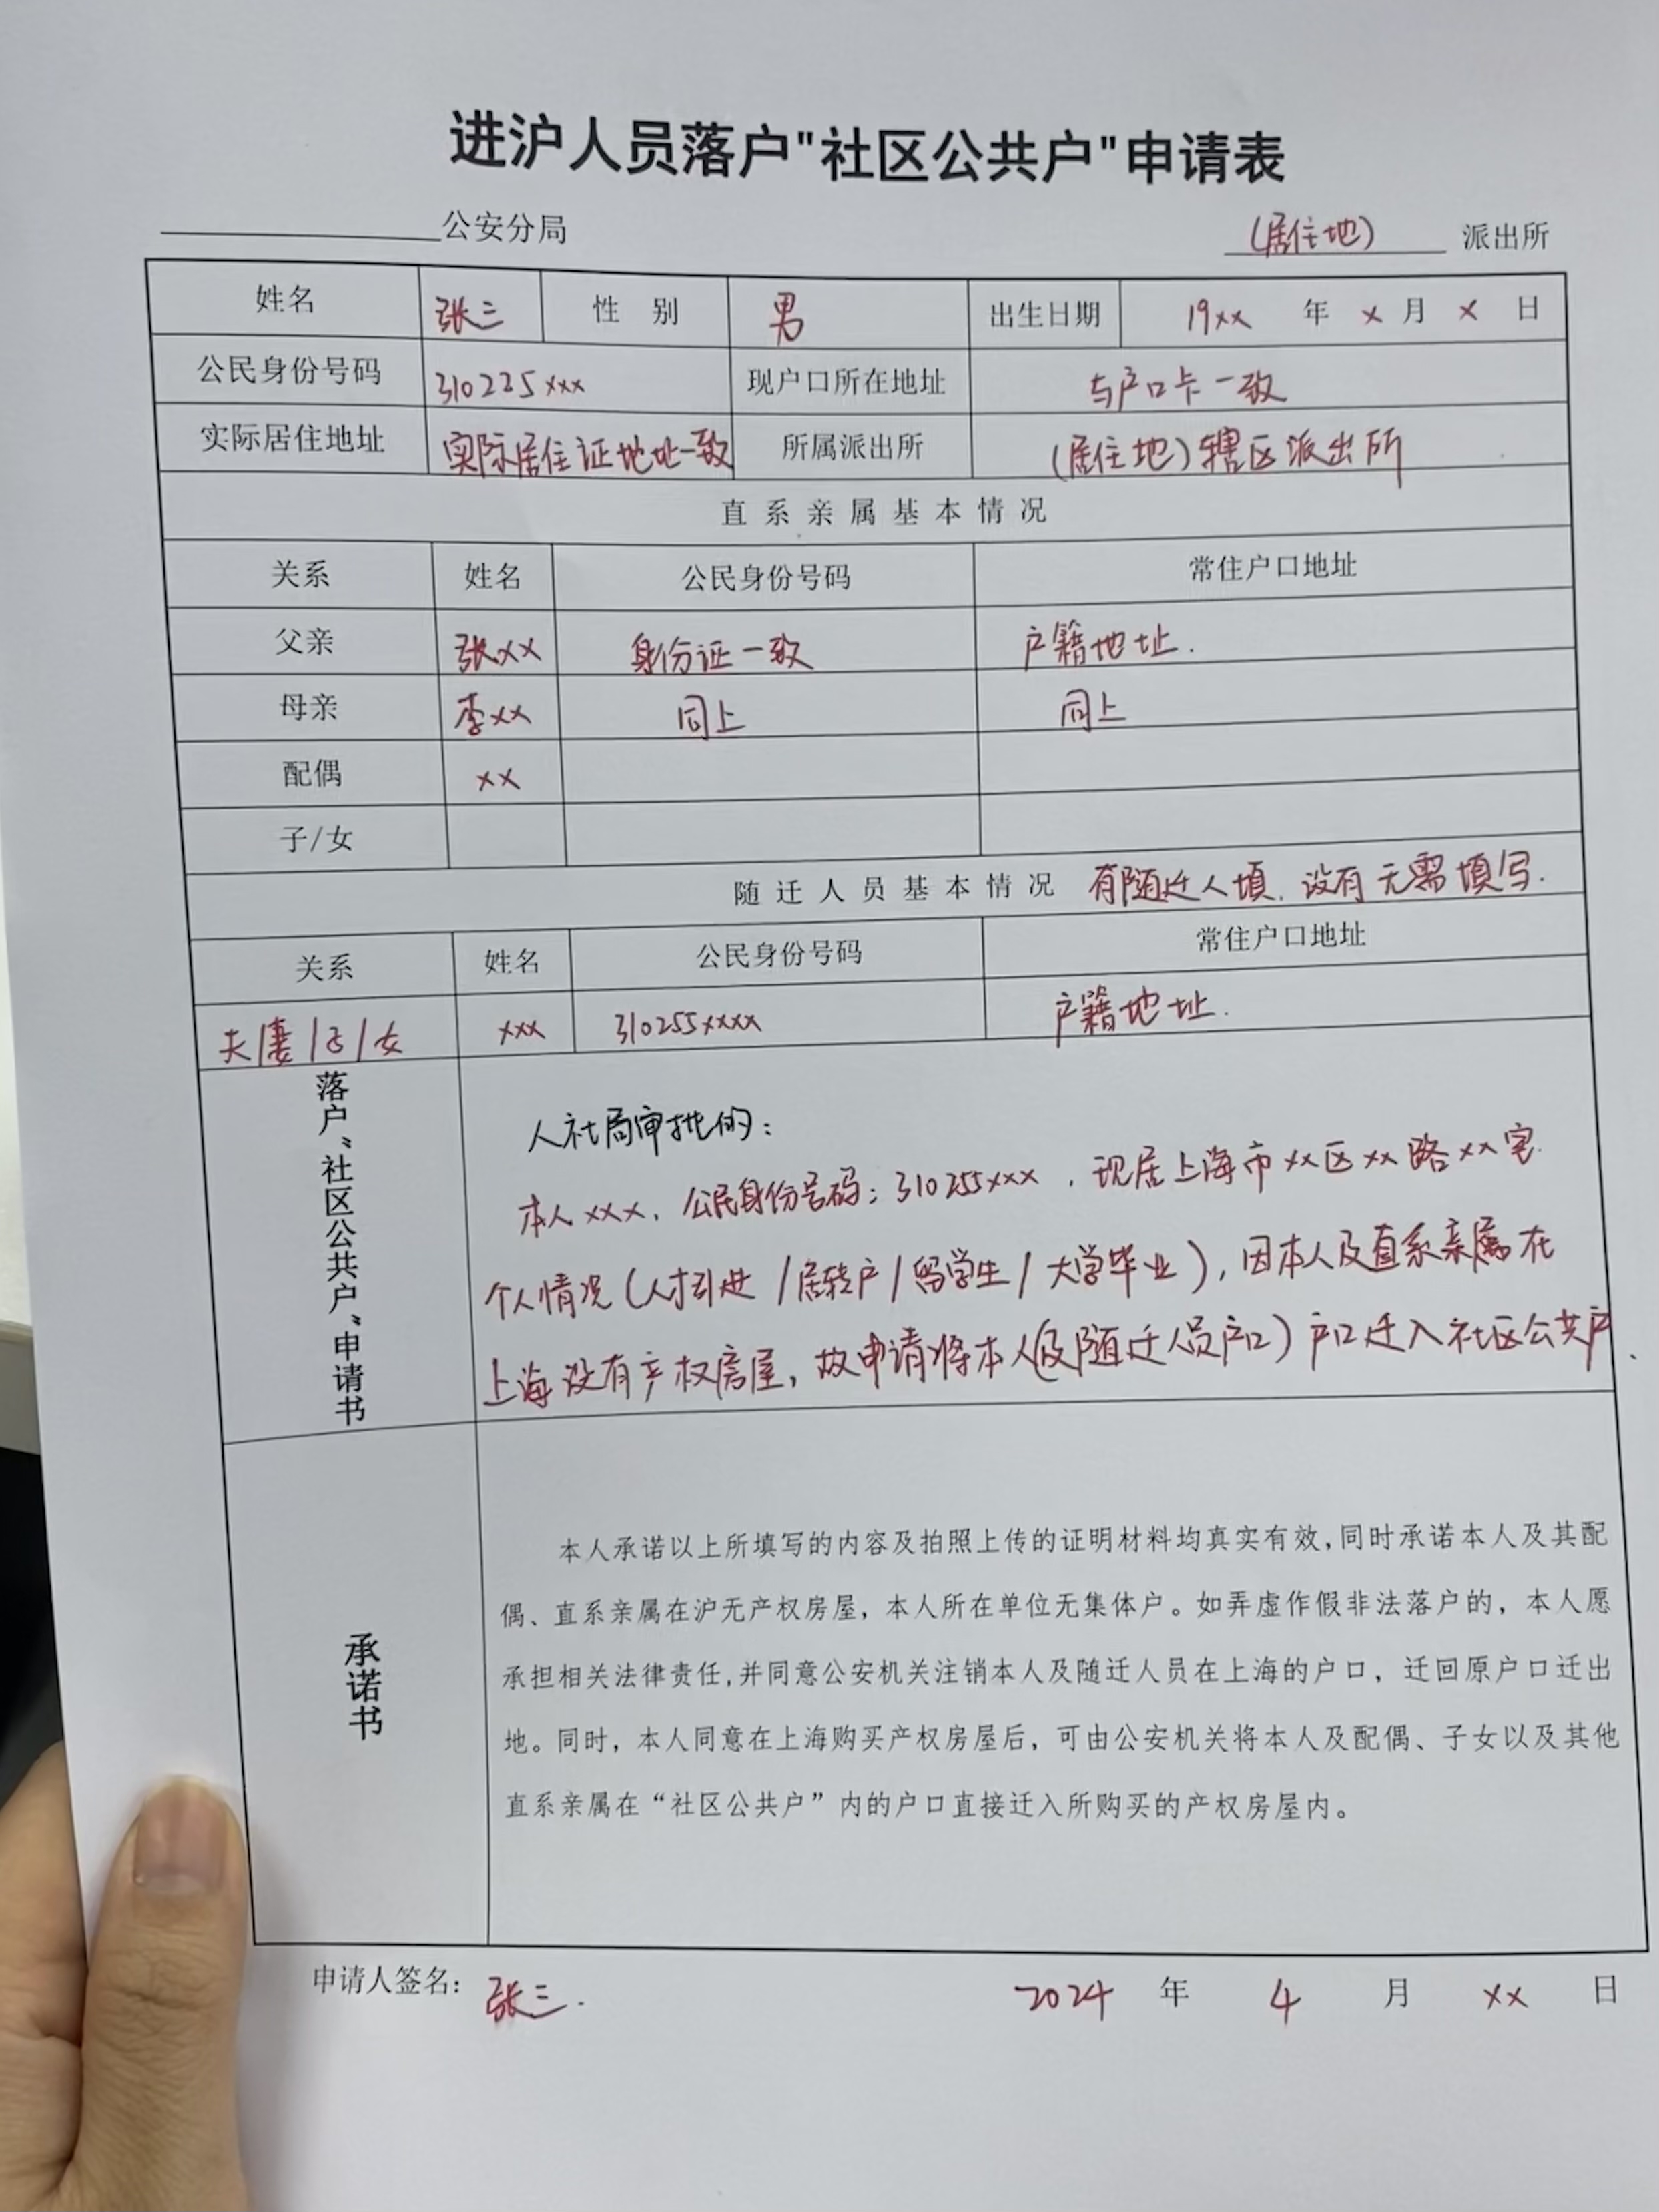 进沪人员落户"社区公共户"申请表
公安分局 (居住地) 派出所
姓名 张三 性别 男 出生日期 19xx 年 x 月 x 日
公民身份号码 310225xxx 现户口所在地址 与户口卡一致
实际居住地址 实际居住证地址一致 所属派出所 (居住地)辖区派出所
直系亲属基本情况
关系 姓名 公民身份号码 常住户口地址
父亲 张xx 身份证一致 户籍地址.
母亲 李xx 同上 同上
配偶 xx
子/女
随迁人员基本情况 有随迁人填.没有无需填写.
关系 姓名 公民身份号码 常住户口地址
夫/妻/子/女 xxx 310255xxxx 户籍地址.
落户"社区公共户"申请书
人社局审批的:
本人xxx,公民身份号码:310255xxx,现居上海市xx区xx路xx室.
个人情况(人才引进/居转户/留学生/大学毕业),因本人及直系亲属在
上海没有产权房屋,故申请将本人(及随迁人员户口)户口迁入社区公共户.
承诺书
本人承诺以上所填写的内容及拍照上传的证明材料均真实有效,同时承诺本人及其配
偶、直系亲属在沪无产权房屋,本人所在单位无集体户。如弄虚作假非法落户的,本人愿
承担相关法律责任,并同意公安机关注销本人及随迁人员在上海的户口,迁回原户口迁出
地。同时,本人同意在上海购买产权房屋后,可由公安机关将本人及配偶、子女以及其他
直系亲属在“社区公共户”内的户口直接迁入所购买的产权房屋内。
申请人签名: 张三. 2024 年 4 月 xx 日